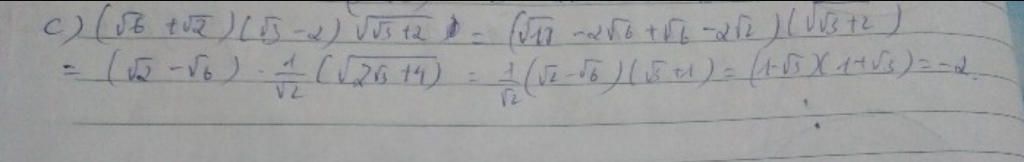 c) (√6 + √2)(√3 - 2) √(√3 + 2) = (√18 - 2√6 + √6 - 2√2)(√(√3 + 2))
= (√2 - √6) · 1/√2 (√(2√3 + 4)) = 1/√2 (√2 - √6)(√3 + 1) = (1 - √3)(1 + √3) = -2.